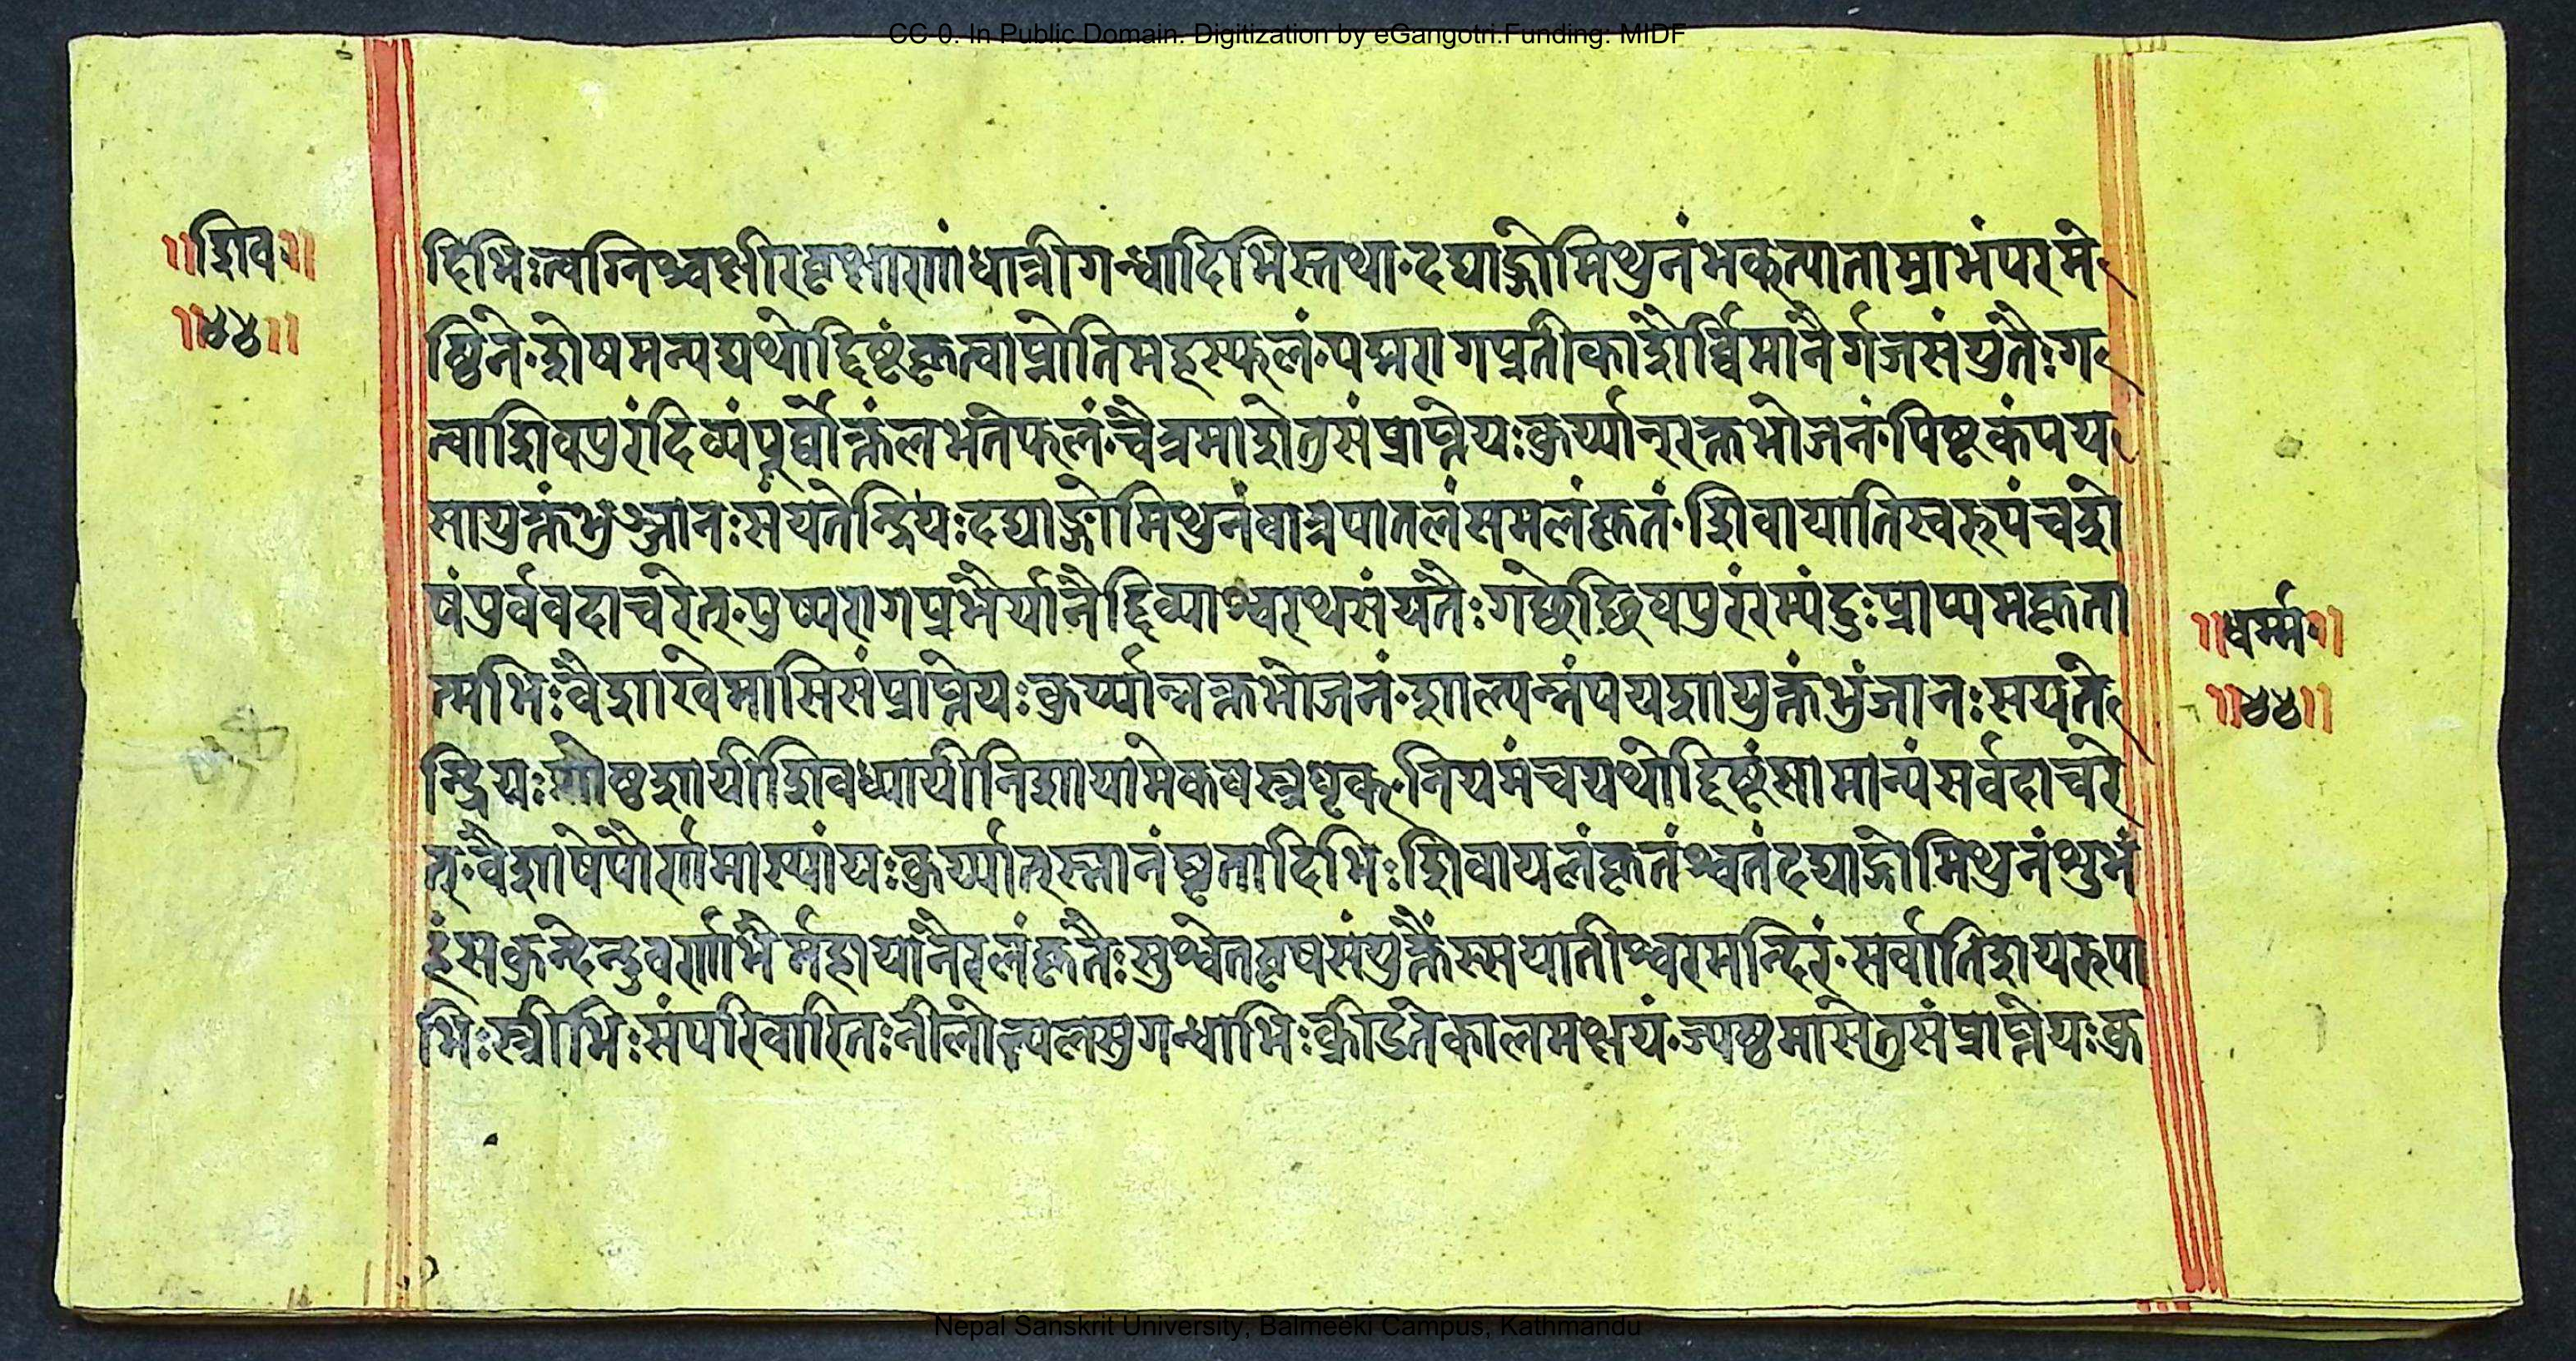 CC-0. In Public Domain. Digitization by eGangotri.Funding: MIDF
॥शिव॥
॥४४॥
दिभिःत्वग्निश्चक्षीरवृक्षाणांधात्रीगन्धादिभिस्तथा॰दद्याद्गोमिथुनंभक्त्याताम्राभंपरमे
ष्ठिने॰शेषमन्यद्यथोद्दिष्टंकृत्वाप्नोतिमहत्फलं॰पद्मरागप्रतीकाशैर्व्विमानैर्गजसंयुतैःग
त्वाशिवपुरंदिव्यंपूर्व्वोक्तंलभतेफलं॰चैत्रमाशेतुसंप्राप्तेयःकुर्य्यान्रक्तभोजनं॰पिष्टकंपय
सायुक्तंभुञ्जानःसंयतेन्द्रियःदद्याद्गोमिथुनंवात्रपातलंसमलंकृतं॰शिवायातिस्वरूपंचशे
षंपुर्ववदाचरेत्॰पुष्परागप्रभैर्यानैर्द्दिव्याश्वरथसंयतैःगच्छेच्छिवपुरंरम्यंदुःप्राप्यमकृता
त्मभिःवैशाखेमासिसंप्राप्तेयःकुर्य्यान्नक्तभोजनं॰शाल्यन्नंपयशायुक्तंभुंजानःसयते
न्द्रियःगोष्ठशायीशिवध्यायीनिशायामेकवस्त्रधृक्॰नियमंचयथोद्दिष्टंसामान्यंसर्वदाचरे
त्॰वैशाषेपौर्णमास्यांयःकुर्य्यात्स्नानंघृतादिभिःशिवायलंकृतंश्वतंदद्याद्गोमिथुनंशुभं
हंसकुन्देन्दुवर्णाभैर्महायानैरलंकृतैःसुश्वेतवृषसंयुक्तैस्सयातीश्वरमन्दिरं॰सर्वातिशयरुपा
भिःस्त्रीभिःसंपरिवारितःनीलोत्पलसुगन्धाभिःक्रीडतेकालमक्षयं॰ज्यष्ठमासेतुसंप्राप्तेयःकु
॥धर्म्म॥
॥४४॥
Nepal Sanskrit University, Balmeeki Campus, Kathmandu